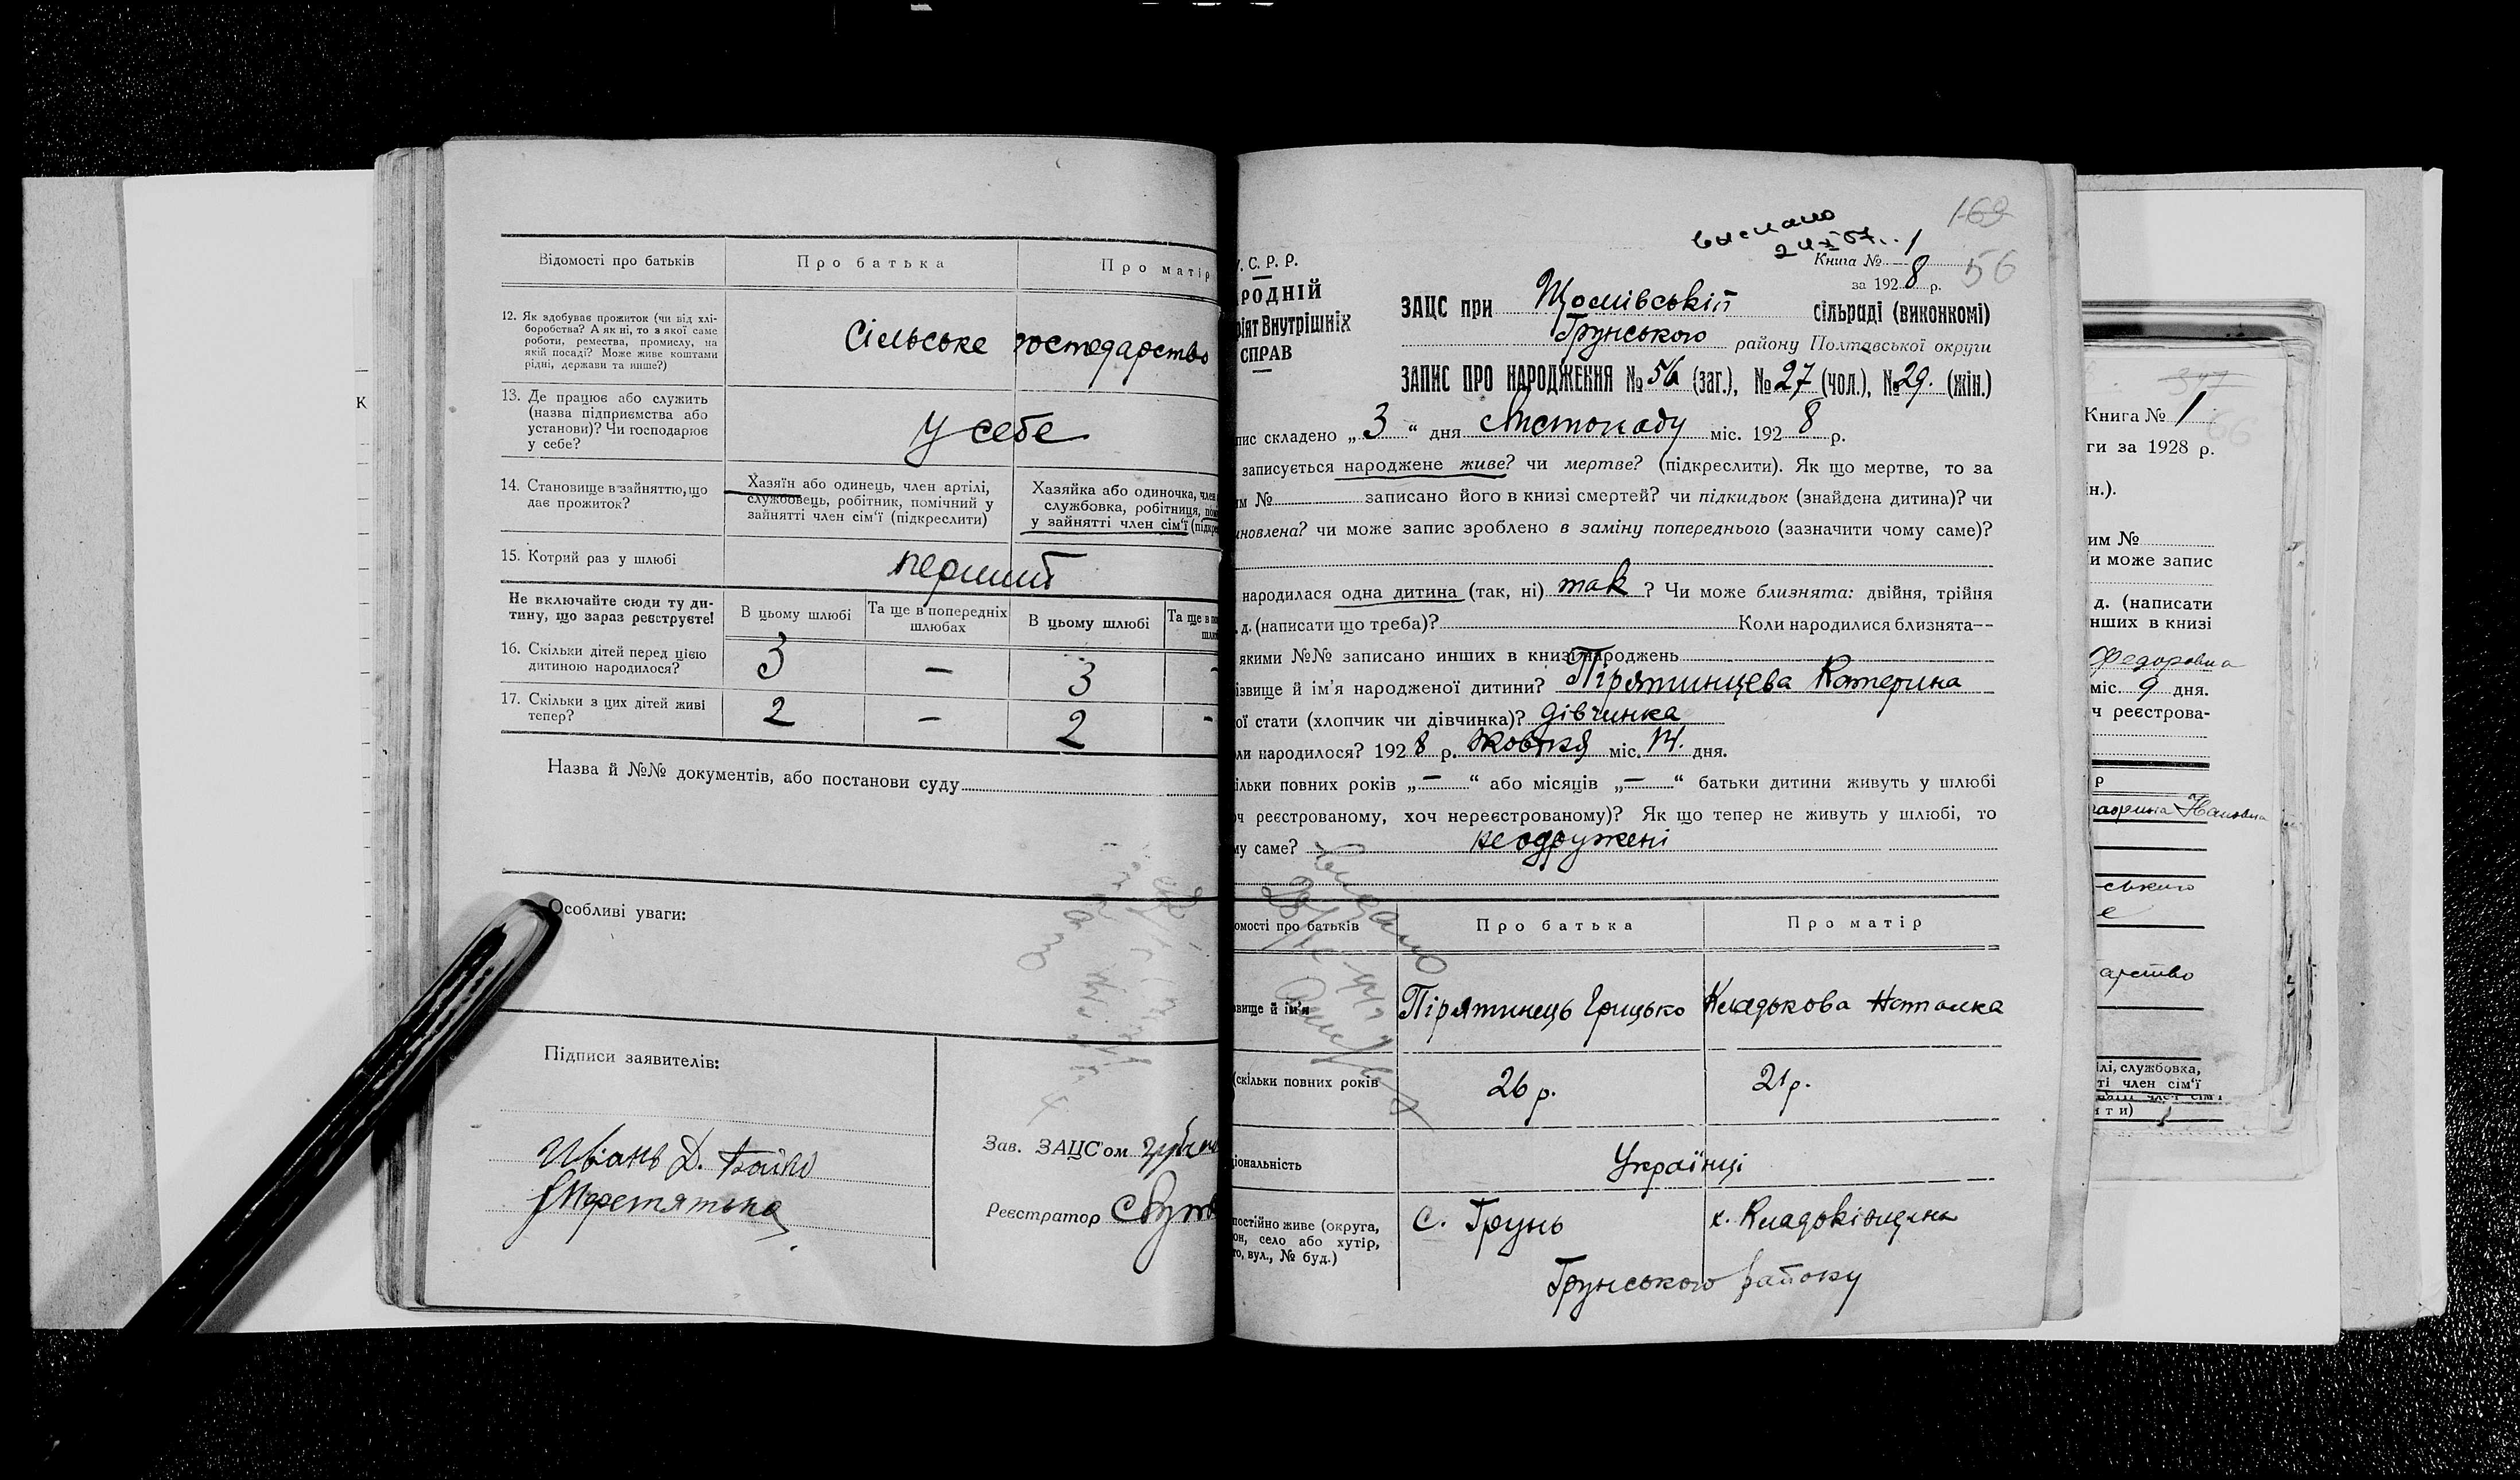 Відомості про батьків
Про батька
Про матір
12. Як здобуває прожиток (чи від хлі-
боробства? А як ні, то з якої саме
роботи, ремества, промислу, на
якій посаді? Може живе коштами
рідні, держави та инше?)
Сільське господарство
13. Де працює або служить
(назва підприємства або
установи)? Чи господарює
у себе?
У себе
14. Становище в зайняттю, що
дає прожиток?
Хазяїн або одинець, член артілі,
службовець, робітник, помічний у
зайнятті член сім'ї (підкреслити)
Хазяйка або одиночка, член
службовка, робітниця, пом
у зайнятті член сім'ї (підкре
15. Котрий раз у шлюбі
перший
Не включайте сюди ту ди-
тину, що зараз реєструєте!
В цьому шлюбі
Та ще в попередніх
шлюбах
В цьому шлюбі
Та ще в по
шлю
16. Скільки дітей перед цією
дитиною народилося?
3 — 3 -
17. Скільки з цих дітей живі
тепер?
2 — 2 -
Назва й №№ документів, або постанови суду
Особливі уваги:
Підписи заявителів:
Иванъ Д. Бойко
Зав. ЗАЦС'ом
Реєстратор
169
56
вислано
Книга № 1
за 1928 р.
У. С. Р. Р.
РОДНІЙ
ріят Внутрішніх
СПРАВ
ЗАЦС при Щомівській сільраді (виконкомі)
Грунського району Полтавської округи
ЗАПИС ПРО НАРОДЖЕННЯ № 56 (заг.), № 27 (чол.), № 29. (жін.)
пис складено „3“ дня Листопаду міс. 1928 р.
записується народжене живе? чи мертве? (підкреслити). Як що мертве, то за
им № записано його в книзі смертей? чи підкидьок (знайдена дитина)? чи
иновлена? чи може запис зроблено в заміну попереднього (зазначити чому саме)?
народилася одна дитина (так, ні) так? Чи може близнята: двійня, трійня
. д. (написати що треба)? Коли народилися близнята—
якими №№ записано инших в книзі народжень
ізвище й ім'я народженої дитини? Пірятинцева Катерина
ої стати (хлопчик чи дівчинка)? дівчинка
ли народилося? 1928 р. Жовтня міс. 14. дня.
ільки повних років „—“ або місяців „—“ батьки дитини живуть у шлюбі
оч реєстрованому, хоч нереєстрованому)? Як що тепер не живуть у шлюбі, то
му саме? не одружені
омості про батьків
Про батька
Про матір
звище й ім'я
Пірятинець Грицько
Кладькова Наталка
(скільки повних років
26 р.
21 р.
іональність
Українці
постійно живе (округа,
он, село або хутір,
то, вул., № буд.)
с. Грунь
х. Кладьківщина
Грунського району
К
347
Книга № 1
66
ги за 1928 р.
ін.).
им №
и може запис
д. (написати
нших в книзі
Федоровна
міс. 9 дня.
ч реєстрова-
р
Ивановна
ського
е
арство
ілі, службовка,
ті член сім'ї
яти)